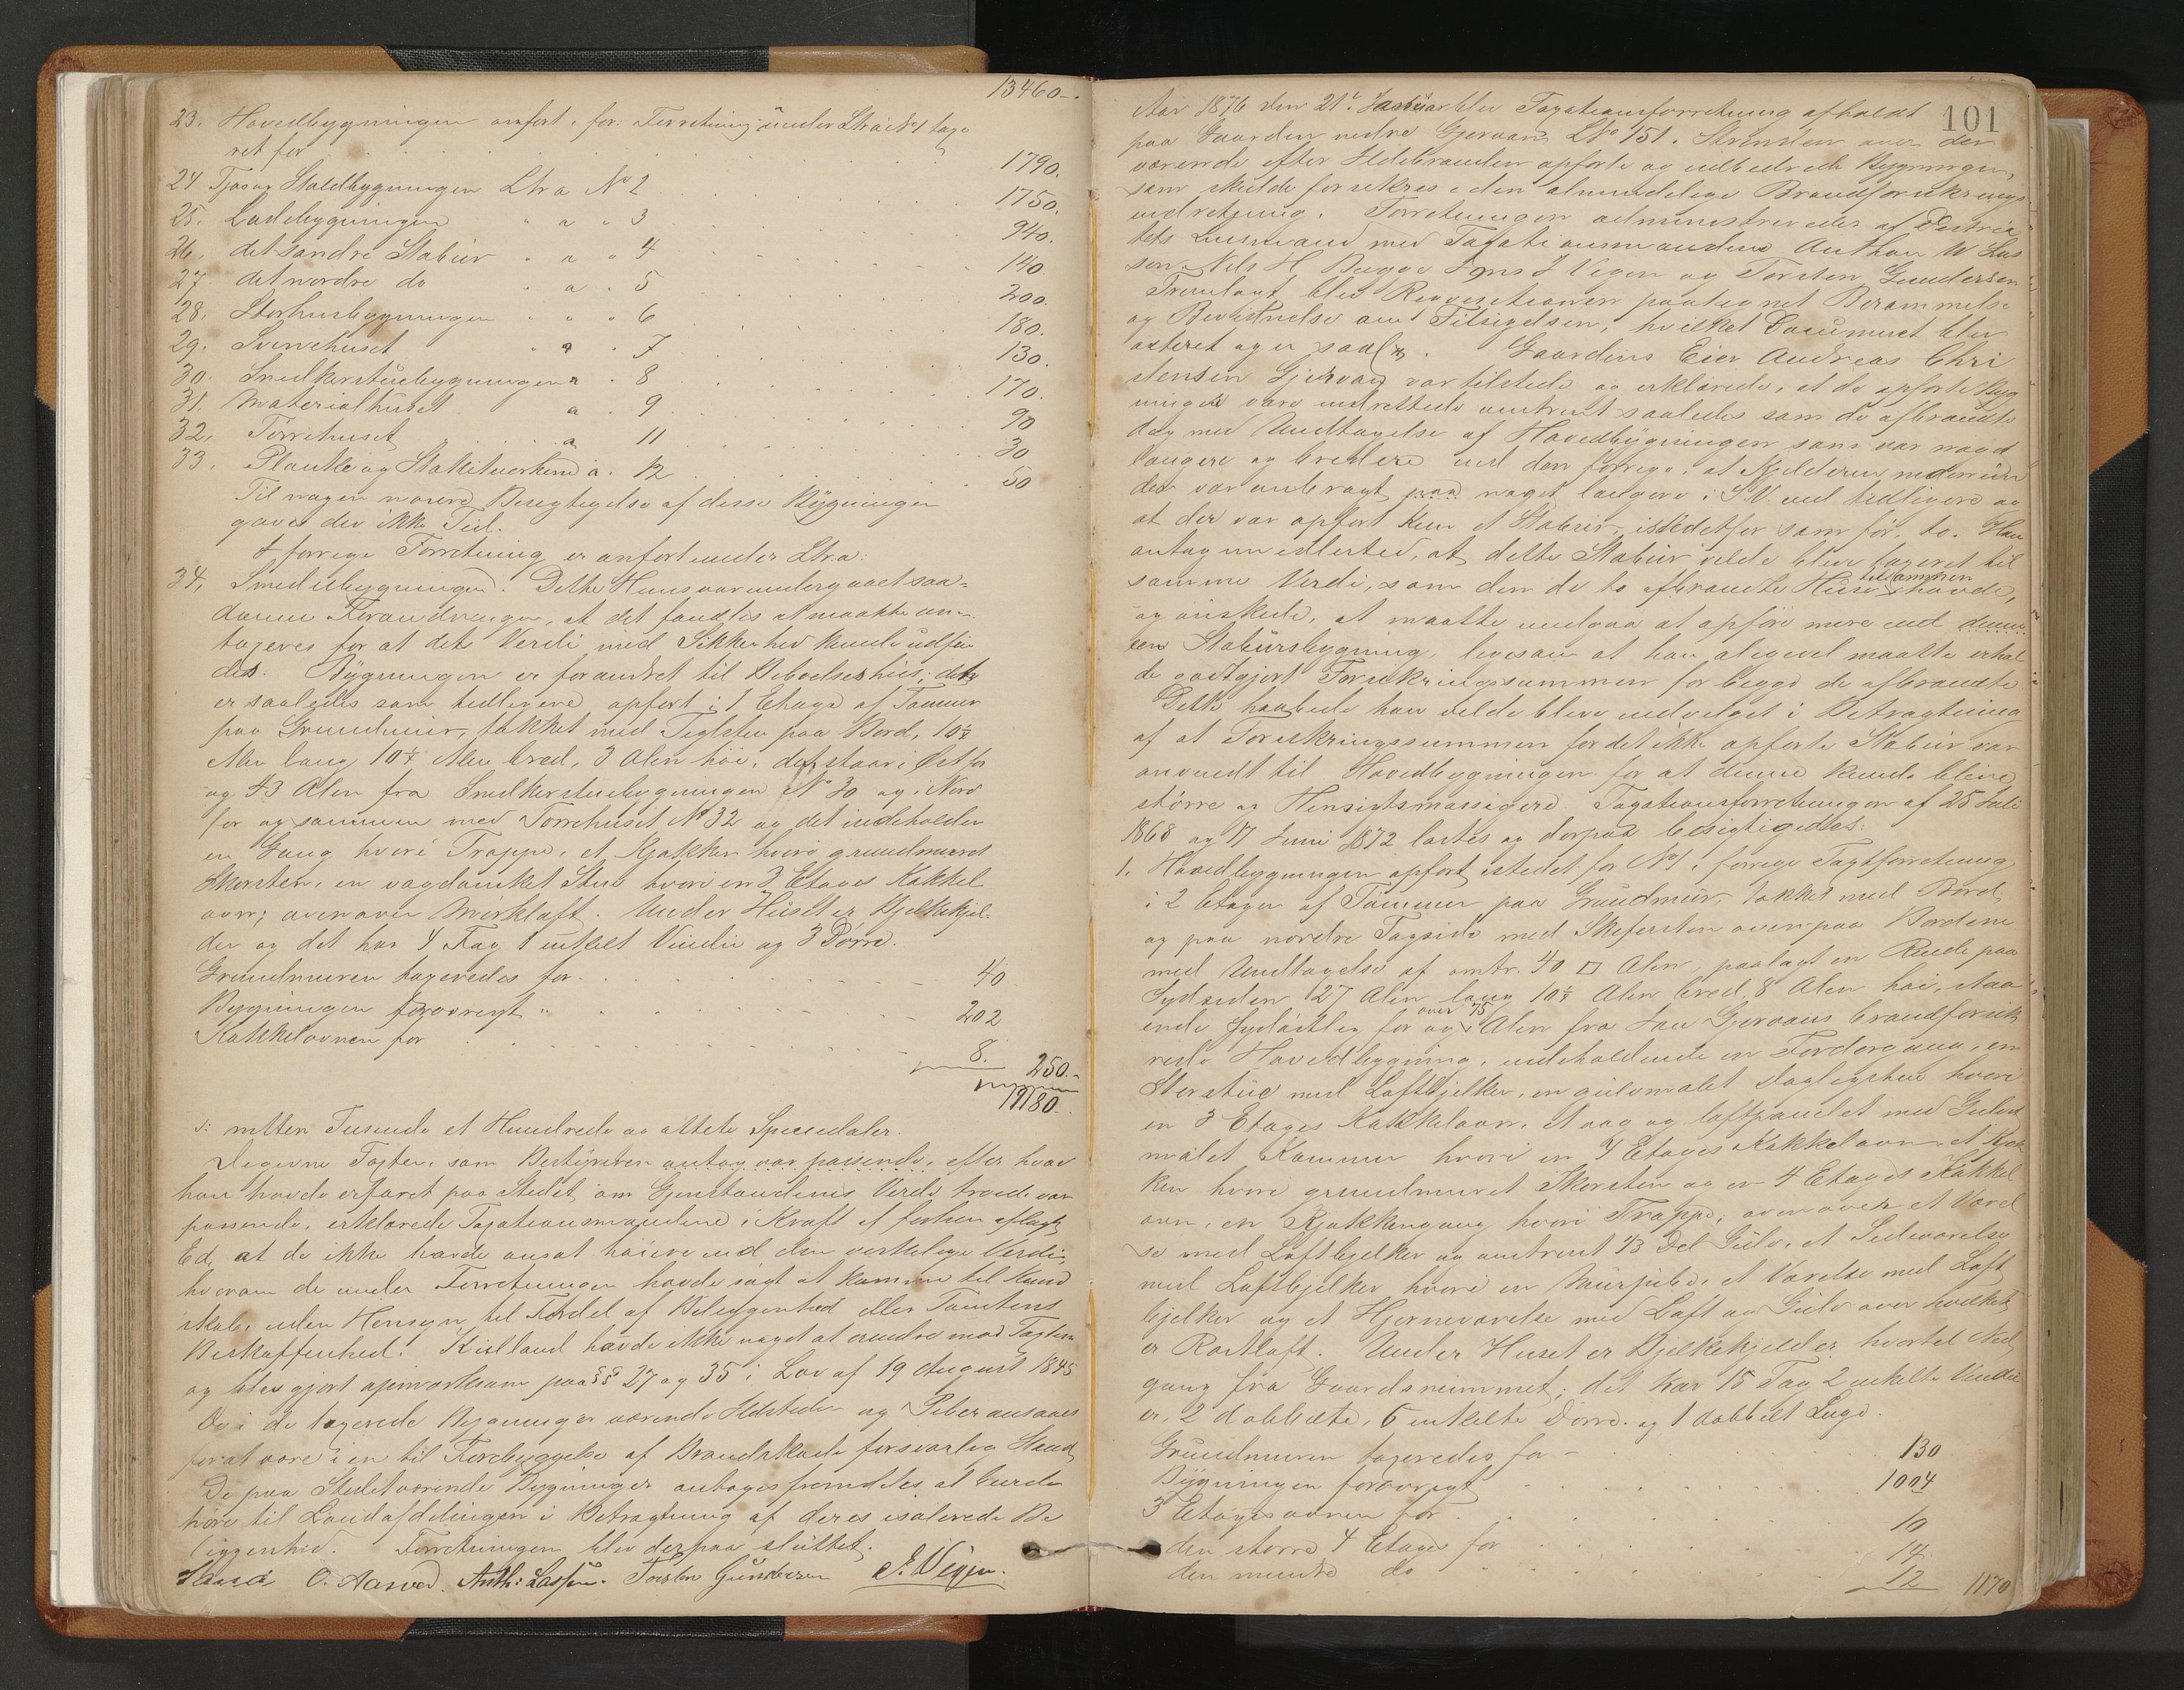 13460-.
23. Hovedbygningen anfört i for: Forretning under Ltra a No 1 taxe
ret for 1790.
24 Fjøs og Staldbygningen Ltra a No 2 1750.
25. Ladebygningen " a " 3 940.
26. det søndre Stabür " a " 4 140
27. det nordre do " a " 5 200.
28. Storhusbygningen " " " 6 180.
29. Svinehuset " a " 7 130.
30. Snedkerstuebygningen a " 8 170.
31. Materialhuset a " 9 90
32. Törrehuset a 11 30
33. Planke og Stakitværkerne a. 12 50
Til nogen nöiere Besigtigelse af disse Bÿgninger
gaves der ikke Tid.
I forrige Forretning er anfört under Ltra:
34. Smediebygningen. Dette Huus var undergaaet saa-
danne Forandringer, at det fandtes at maatte an-
tageres for at dets Verdi med Sikkerhed kunde udfin
des. Bÿgningen er forandret til Beboelseshus; det
er saaledes som tidligere opfört i 1 Etage af Tømmer
paa Grundmur, tækket med Teglsten paa Bord, 10½
Alen lang 10¼ Alen bred, 3 Alen höi, det staar i Öst for
og 43 Alen fra Snedkerstuebygningen No 30 og i Nord
for og sammen med Törrehuset No 32 og det indeholder
en Gang hvori Trappe, et Kjøkken hvori grundmuret
Skorsten, en vægpanket Stue hvori en 3 Etages Kakkel
ovn; ovenover Mörkloft. Under Huset er Bjelkekjel-
der og det har 4 Fag 1 enkelt Vindu og 3 Dörre.
Grundmuren taxeredes for 40
Bygningen forövrigt " 202
Kakkelovnen for 8. 250.-
19180.
s: nitten Tusende et Hundrede og ottete Speciedaler.
Degivne Taxter, som Bestÿreren antog var passende, efter hvad
han havde erfaret paa Stedet om Gjenstandenes Verdi, troede var
passende, erklærede Taxationsmændene i Kraft af forhen aflagt
Ed, at de ikke havde ansat höiere end den virkelige Verdi,
hvorom de under Forretningen havde sögt at komme til Kund
skab, uden Hensyn til Fordel af Beliggenhed eller Tomtens
Beskaffenhed. Kielland havde ikke noget at erindre mod Taxten
og blev gjort opmærksom paa §§ 27 og 35 i Lov af 19 August 1845
De i de taxerede Bygninger værende Ildsteder og Piber ansaaes
for at være i en til Forebyggelse af Brandskade forsvarlig Stand
De paa Stedet værende Bygninger antoges fremdeles at burde
höre til Landafdelingen i Betragtning af deres isolerede Be
liggenhed. Forretningen blev derpaa sluttet.
O. Aasved. Anth: Lassen. Torsten Gundersen J. Vigen.
101
Aar 1876 den 21de Januar blev Taxationsforretning afholdt
paa Gaarden nedre Gjervan LNo 151 i Strinden over der
værende efter Ildebranden opförte og udbedrede Bygninger,
som skulde forsikres i den almindelige Brandforsikrings
indretning. Forretningen administreredes af Distrik
tets Lensmand med Taxationsmændene Anthon W Las
sen, Nils H. Bugge Jens J Vigen og Torsten Gundersen
Fremlagt blev Reqvisitionen paategnet Berammelse
og Bevidnelse om Tilsigelsen, hvilket Document blev
acteret og er saal. Gaardens Eier Andreas Chri
stensen Gjervan var tilstede og erklærede, at de opförte Byg
ninger vare indrettede omtrent saaledes som de afbrændte
dog med Undtagelse af Hovedbÿgningen som var noget
længere og bredere end den forrige, at Kjelderen nedenun
der var anbragt paa noget længere i SV. end tidligere og
at der var opfört kun et Stabür, istedetfor som för, to. Han
antog imidlertid, at dette Stabür vilde blive taxeret til
samme Verdi, som den de to afbrændte Huse tilsammen havde,
og önskede, at maatte undgaa at opföre mere end denne
een Stabürsbygning, ligesom at han alligevel maatte erhol
de godtgjort Forsikringssummen for begge de afbrændte
Dette haabede han vilde blive indvilget i Betragtning
af at Forsikringssummen for det ikke opförte Stabür var
anvendt til Hovedbygningen for at denne kunde blive
större og Hensigtsmæssigere. Taxationsforretningen af 25 Juli
1868 og 17 Juni 1872 læstes og derpaa besigtigedes:
1. Hovedbygningen opfört istedet for No 1 i forrige Taxtforretning
i 2 Etager af Tömmer paa Grundmür, tækket med Bord
og paa nordre Tagside med Skifersten ovenpaa Bordene
med Undtagelse af omtr. 40 □ Alen, paalagt en Rude paa
Sydsiden, 27 Alen lang 10¼ Alen bred, 8 Alen höi, staa
ende sydöstlig for og over 75 Alen fra Jau Gjervans brandforsik
rede Hovedbygning, indeholdende en Fordergang, en
Storstüe med Loftbjelker, en gulvmalet Daglegstue hvori
en 3 Etages Kakkelovn, et væg og loftpanelet med Gulv
malet Kammer hvori en 4 Etages Kakkelovn, et Kjøk
ken hvori grundmuret Skorsten og en 4 Etages Kakkel
ovn, en Kjøkkengang hvori Trappe; ovenover et Værel
se med Loftbjelker og omtrent 1/3 Del Gulv, et Sideværelse
med Loftbjelker hvori en Mürpibe, et Værelse med Loft
bjelker og et Hjerneværelse med Loft og Gulv over hvilket
er Rostloft. Under Huset er Bjelkekjelder hvortil Ned
gang fra Gaardsrummet; det har 15 Fag 2 enkelte Vindu
er, 2 dobbelte, 6 enkelte Dörre og 1 dobbelt Luge.
Grundmuren taxeredes for 130
Bÿgningen forövrigt 1004
3 Etagesovnen for 10
den större 4 Etages for 14
den mindre do 12 1170